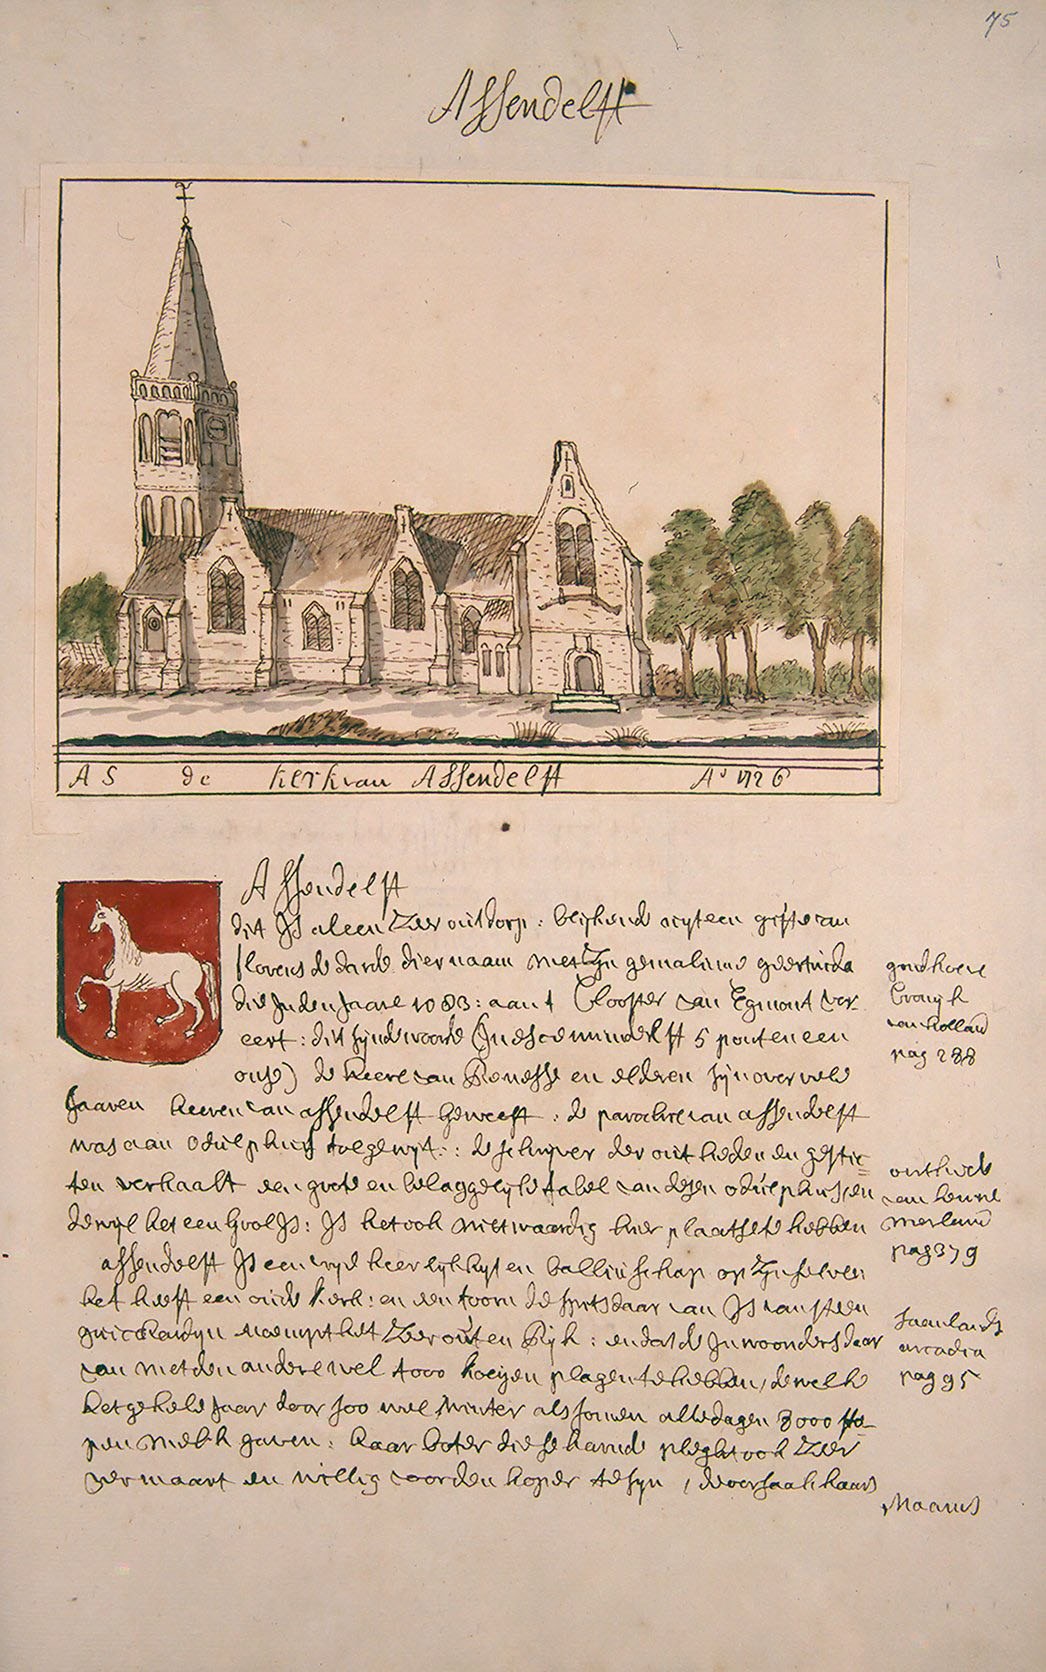 75
Assendelft
A S de kerk van Assendelft Ao 1726
Assendelft
dit Js aleen Zeer out dorp : blijkende uyt een gifte van
florens de darde die er naam met Zyn gemalinne geertruida
die Jn den Jaare 1083 : aan t Clooster van Egmont ver
eert : dit syn de woorde (Jn escemindelft 5 ponten een
onse) de heere van Renesse en elderen syn over vele
Jaaren heeren van assendelft geweest : de parochie van assendelft
was aan odulphus toegewyt : de schryver der outheden en gestic=
ten verhaalt een grote en belaggelyke fabel van desen odulphus en
dewyl het een Js : Js het ook niet waardig hier plaats te hebben
assendelft Js een vrye heerlykhyt en balliuschap op Zyn selven
het heeft een oude kerk : en een toorn de spits daar van Js van steen
guicchardyn noempt het Zeer out en Ryk : en dat de Jnwoonders daar
van met den andere wel 4000 koeyen plagen te hebben / dewelke
het geheele Jaar door soo wel winter als somer alle dagen 8000 sto-
pen melk gaven : haar boter die se karnde pleght ook Zeer
vermaart en willig voor den koper te syn / de oorsaak haars
naams
goudhoeve
Cronyk
van holland
pag 288
outhede
van kenne
merland
pag 379
saenlands
arcadia
pag 95